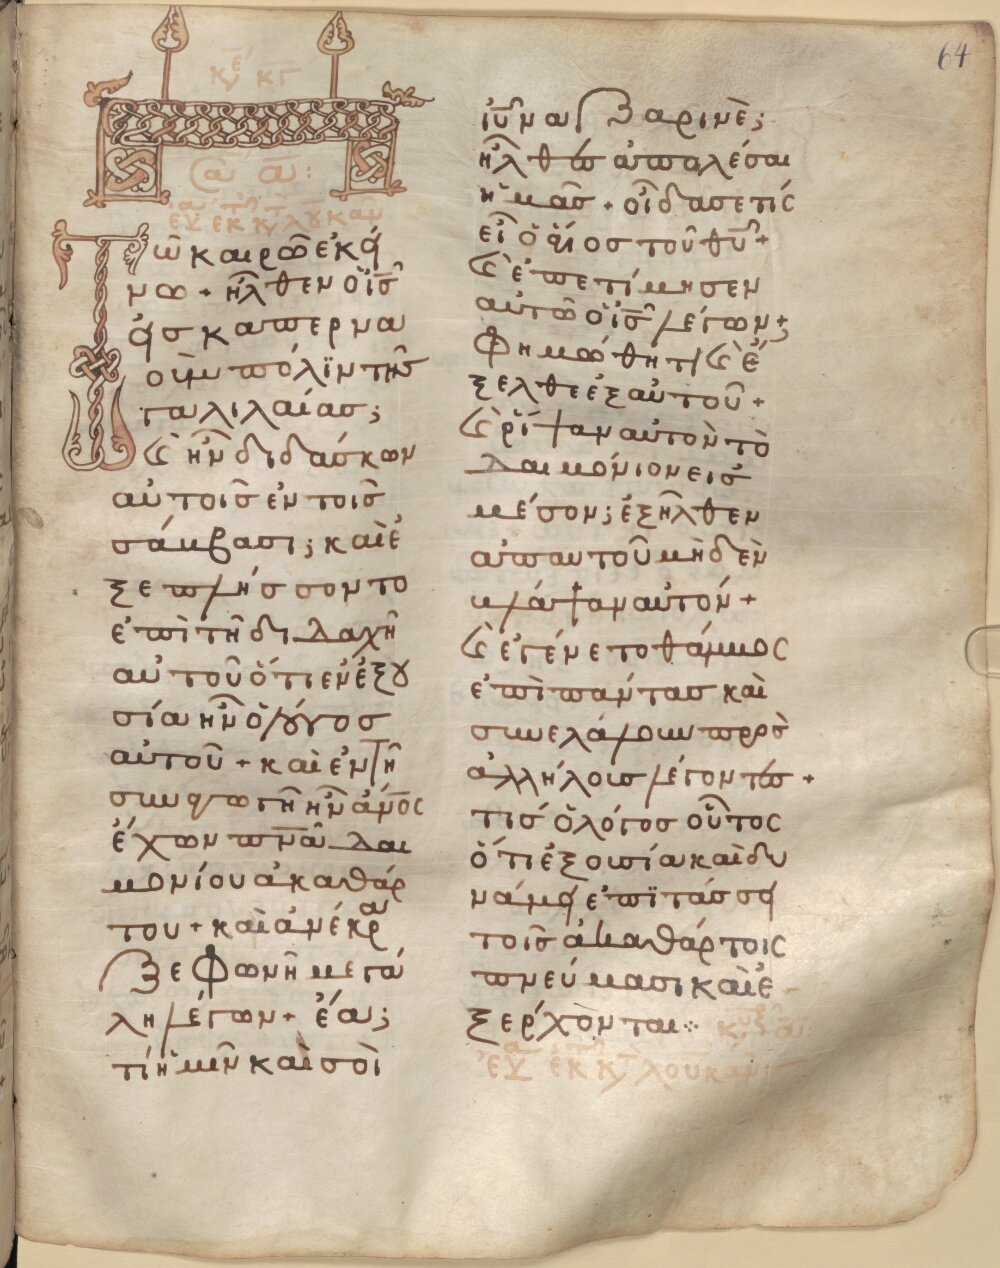 64
κυ ε κγ
α α:
ευα εκ του κτ λουκαν
Τῶ καιρῶ ἐκεί
νω + ἦλθεν ὁ ἰς̅
εἰσ καπερνα
οὺμ πόλϊν τῆς
γαλιλαίασ ;
Καὶ ἦν διδάσκων
αὐτοῖσ ἐν τοῖσ
σάμβασι ; καὶ ἐ
ξεπλήσσοντο
ἐπὶ τῆ διδαχῆ
αὐτοῦ ὅτι ἐν ἐξου
σία ἦν ὁ λόγοσ
αὐτοῦ + καὶ ἐν τῆ
συναγωγῆ ἦν ἀν̅οσ
ἔχων πν̅α δαι
μονίου ἀκαθάρ
του + καὶ ἀνέκρα
ξε φωνῆ μεγά
λη λέγων + ἔα ;
τί ἡμῖν καὶ σοὶ
ἰυ̅ ναζαρινὲ ;
ἦλθεσ ἀπολέσαι
ἡμᾶσ + οἶδα σε τίς
εἶ ὁ ἅγιοσ τοῦ θυ̅ +
Καὶ ἐπετίμησεν
αὐτῶ ὁ ἰσ̅ λέγων +
Φημώθητι καὶ ἔ
ξελθε ἐξ αὐτοῦ +
Καὶ ρίψαν αὐτὸν τὸ
δαιμόνιον εισ
μέσον ; ἐξῆλθεν
ἀπ αυτοῦ μηδὲν
βλάψαν αὐτόν +
Καὶ ἐγένετο θάμβος
ἐπὶ πάντασ καὶ
συνελάλουν πρὸσ
ἀλλήλουσ λέγοντεσ +
τίσ ὁ λόγοσ οὗτος
ὅτι ἐξουσία καὶ δυ
νάμει ἐπϊτάσσει
τοῖσ ἀκαθάρτοις
πνεύμασι καὶ ἐ
ξερχονται ⁘
ευα ἐκ του κτ λουκαν: